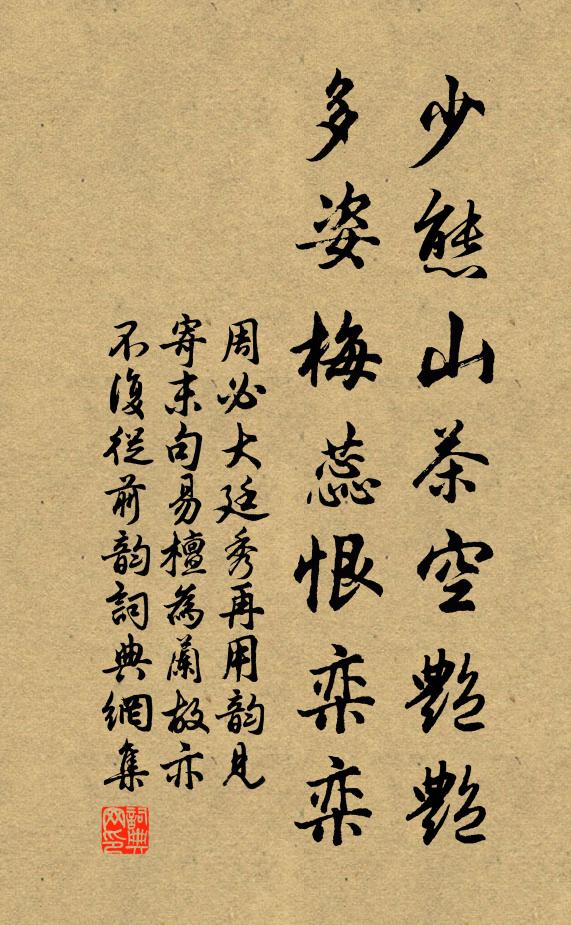 少態山茶空艷艷
多姿梅蕊恨栾栾
周必大廷秀再用韵見
寄末句易檀為蘭故亦
不復從前韵詞典網集
詞典網印